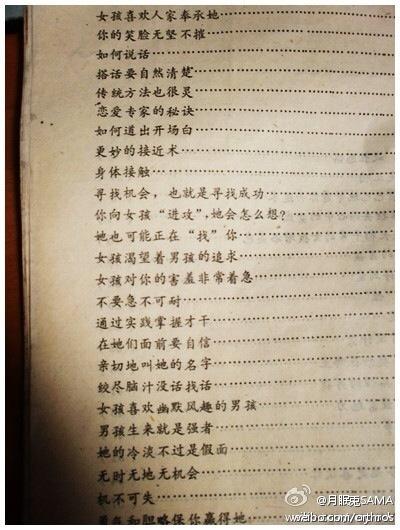 女孩喜欢人家奉承她……
你的笑脸无坚不摧……
如何说话……
搭话要自然清楚……
传统方法也很灵……
恋爱专家的秘诀……
如何道出开场白……
更妙的接近术……
身体接触……
寻找机会，也就是寻找成功……
你向女孩“进攻”，她会怎么想？……
她也可能正在“找”你……
女孩渴望着男孩的追求……
女孩对你的害羞非常着急……
不要急不可耐……
通过实践掌握才干……
在她们面前要自信……
亲切地叫她的名字……
绞尽脑汁没话找话……
女孩喜欢幽默风趣的男孩……
男孩生来就是强者……
她的冷淡不过是假面……
无时无地无机会……
机不可失……
勇气和胆略保你赢得她……
@月眠兔SAMA
weibo.com/orthros